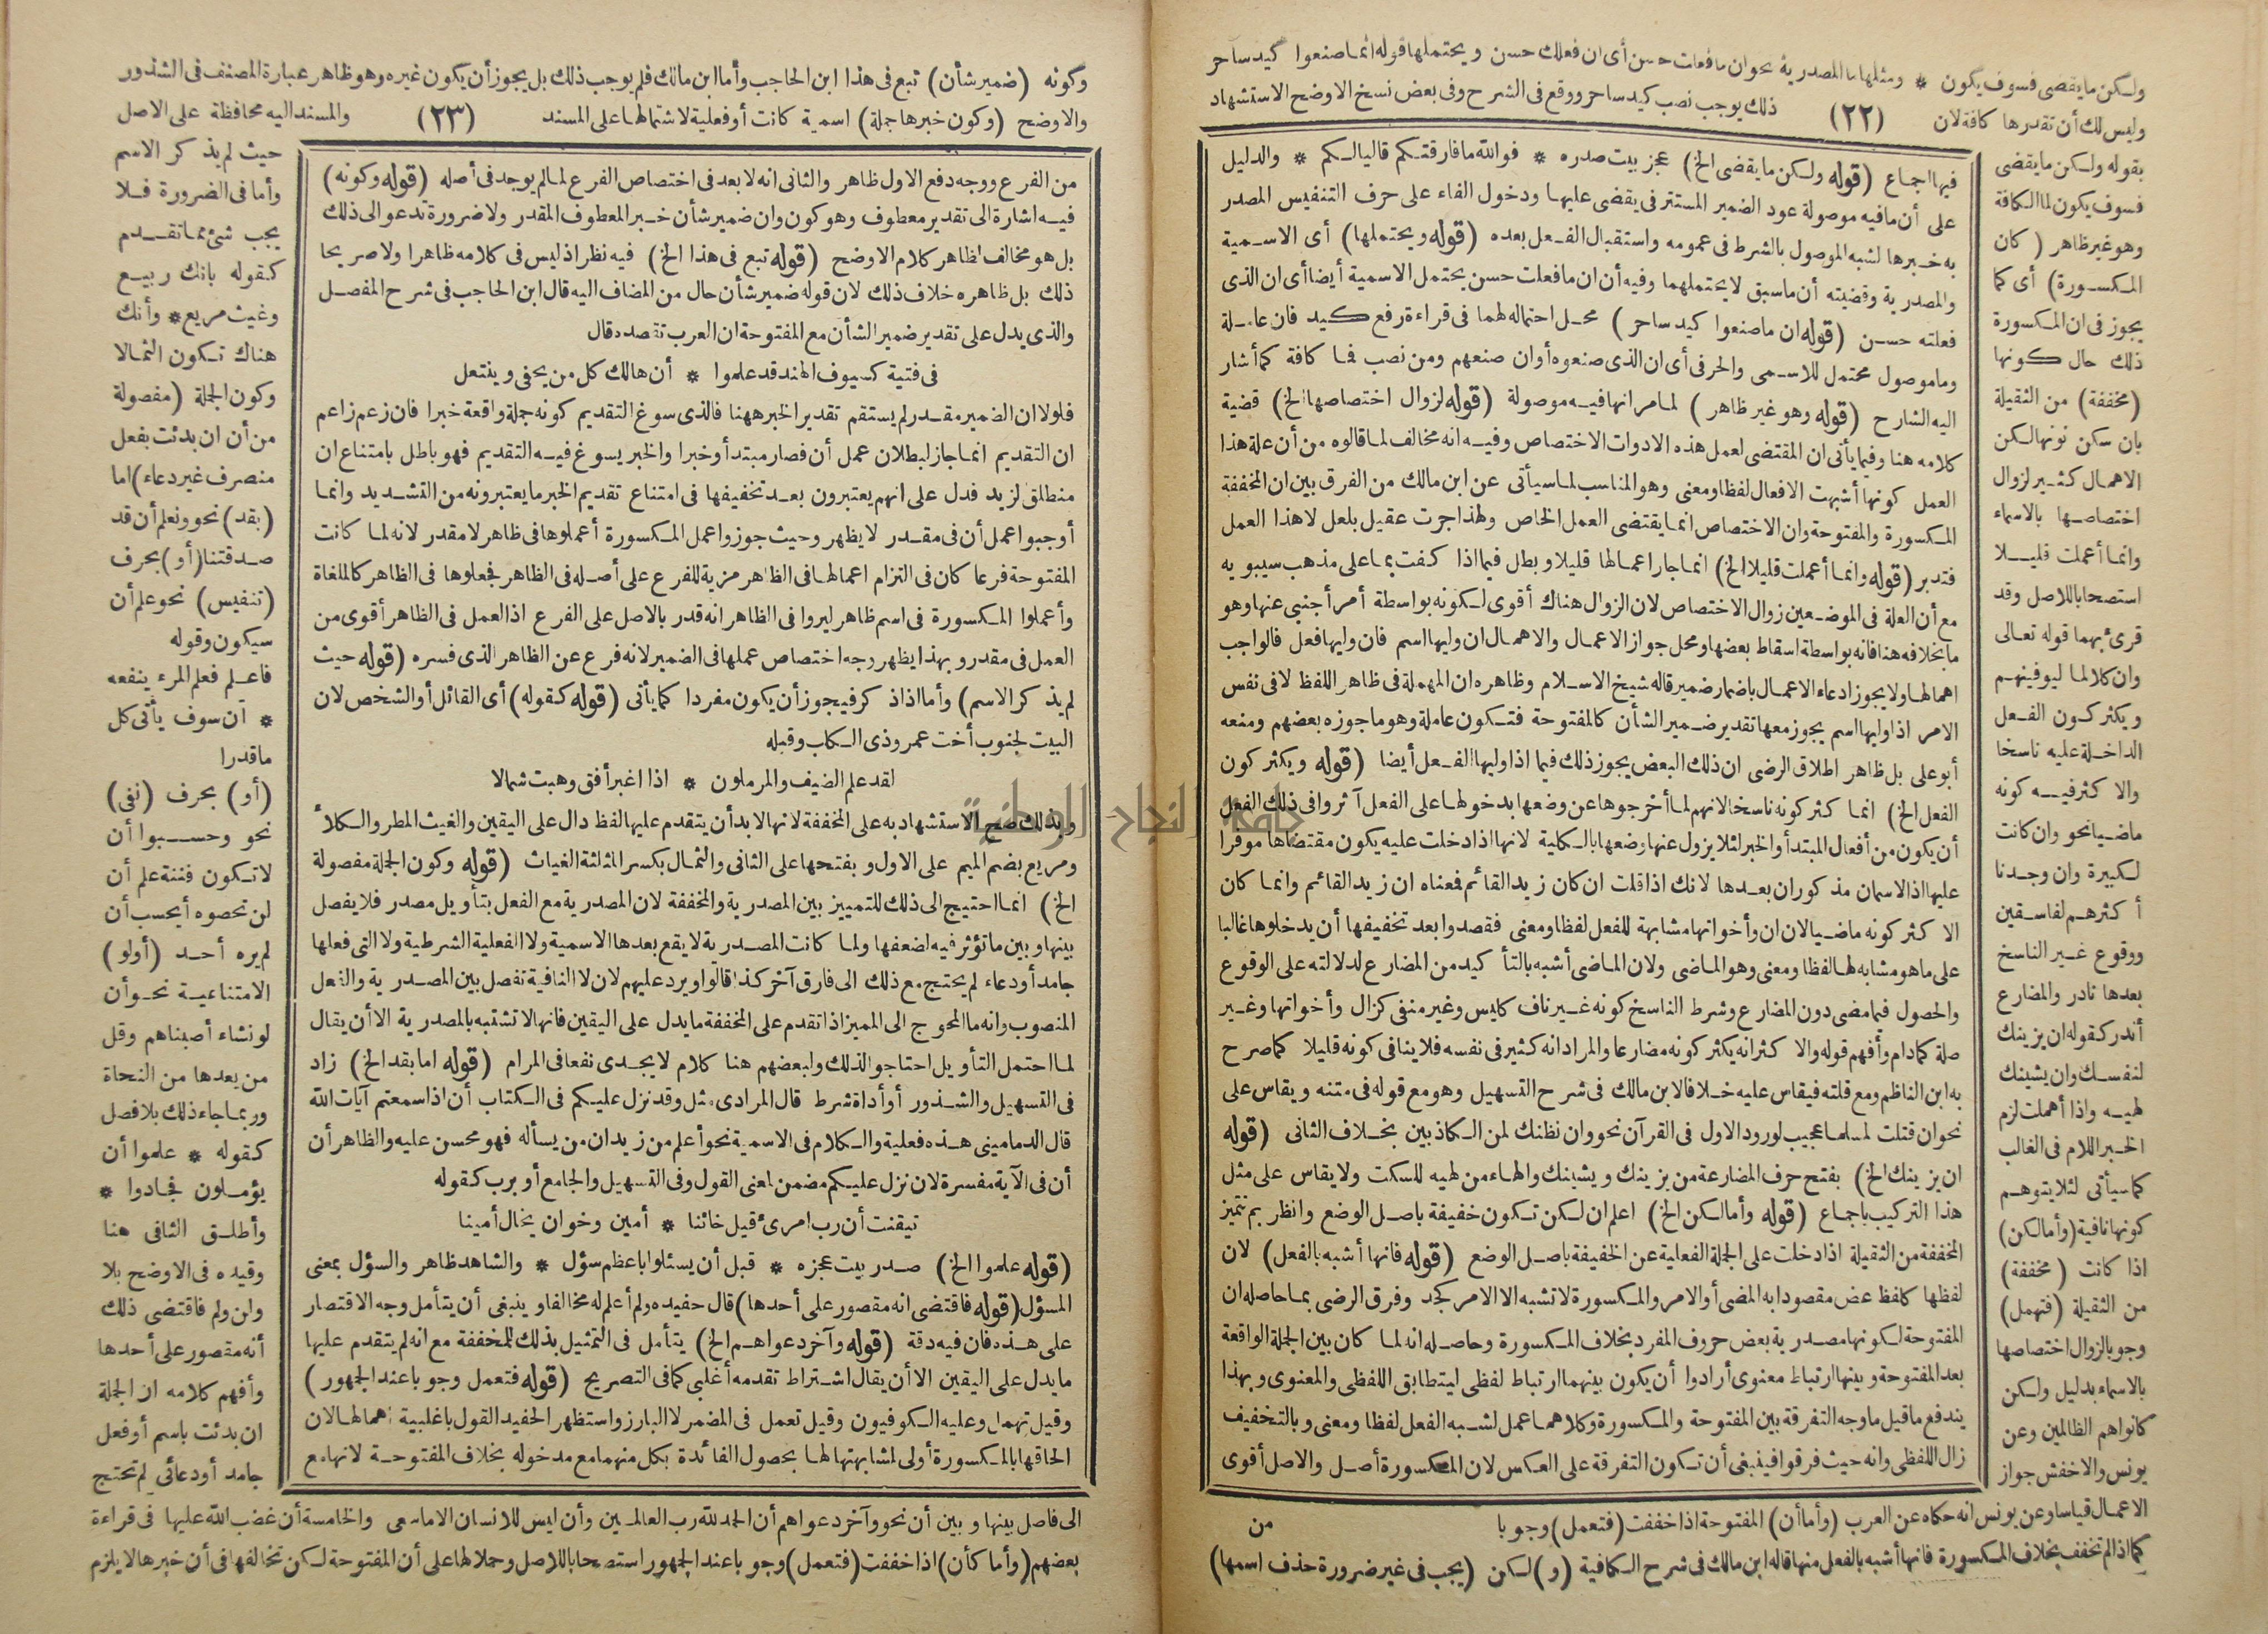 ولكن ما يقضى فسوف يكون * ومثلها ما المصدرية نحو ان ما فعلت حسن أى ان فعلك حسن ويحتملها قوله انما صنعوا كيد ساحر
وليس لك أن تقدرها كافة لان (٢٢) ذلك يوجب نصب كيد ساحر ووقع فى الشرح وفى بعض نسخ الاوضح الاستشهاد
بقوله ولكن ما يقضى
فسوف يكون لما الكافة
وهو غير ظاهر (كان
المكسورة) أى كما
يجوز فى ان المكسورة
ذلك حال كونها
(مخففة) من الثقيلة
بان سكن نونها لكن
الاهمال كثير لزوال
اختصاصها بالاسماء
وانما أعملت قليلا
استصحابا للاصل وقد
قرئ بهما قوله تعالى
وان كلا لما ليوفينهم
ويكثر كون الفعل
الداخلة عليه ناسخا
والا كثر فيه كونه
ماضيا نحو وان كانت
لكبيرة وان وجدنا
أكثرهم لفاسقين
ووقوع غير الناسخ
بعدها نادر والمضارع
أندر كقوله ان يزينك
لنفسك وان يشينك
لهيه واذا أهملت لزم
الخبر اللام فى الغالب
كما سيأتى لئلا يتوهم
كونها نافية (وأما لكن)
اذا كانت (مخففة)
من الثقيلة (فتهمل)
وجوبا لزوال اختصاصها
بالاسماء بدليل ولكن
كانوا هم الظالمين وعن
يونس والاخفش جواز
الاعمال قياسا وعن يونس انه حكاه عن العرب (وأما أن) المفتوحة اذا خففت (فتعمل) وجوبا
كما اذا لم تخفف بخلاف المكسورة فانها أشبه بالفعل منها قاله ابن مالك فى شرح الكافية (و) لكن (يجب فى غير ضرورة حذف اسمها)
فيها اجماع (قوله ولكن ما يقضى الخ) عجز بيت صدره * فوالله ما فارقتكم قاليا لكم * والدليل
على أن ما فيه موصولة عود الضمير المستتر فى يقضى عليها ودخول الفاء على حرف التنفيس المصدر
به خبرها لشبه الموصول بالشرط فى عمومه واستقبال الفعل بعده (قوله ويحتملها) أى الاسمية
والمصدرية وقضيته أن ما سبق لا يحتملهما وفيه أن ان ما فعلت حسن يحتمل الاسمية أيضا أى ان الذى
فعلته حسن (قوله ان ما صنعوا كيد ساحر) محل احتماله لهما فى قراءة رفع كيد فان عاملة
وما موصول محتمل للاسمى والحرفى أى ان الذى صنعوه أو ان صنعهم ومن نصب فما كافة كما أشار
اليه الشارح (قوله وهو غير ظاهر) لما مر انها فيه موصولة (قوله لزوال اختصاصها الخ) قضية
كلامه هنا وفيما يأتى ان المقتضى لعمل هذه الادوات الاختصاص وفيه انه مخالف لما قالوه من أن علة هذا
العمل كونها أشبهت الافعال لفظا ومعنى وهو المناسب لما سيأتى عن ابن مالك من الفرق بين ان المخففة
المكسورة والمفتوحة وان الاختصاص انما يقتضى العمل الخاص ولهذا جرت عقيل بلعل لا هذا العمل
فتدبر (قوله وانما أعملت قليلا الخ) انما جاز اعمالها قليلا وبطل فيما اذا كفت بما على مذهب سيبويه
مع أن العلة فى الموضعين زوال الاختصاص لان الزوال هناك أقوى لكونه بواسطة أمر أجنبي عنها وهو
ما بخلافه هنا فانه بواسطة اسقاط بعضها ومحل جواز الاعمال والاهمال ان وليها اسم فان وليها فعل فالواجب
اهمالها ولا يجوز ادعاء الاعمال باضمار ضمير قاله شيخ الاسلام وظاهره ان المهملة فى ظاهر اللفظ لا فى نفس
الامر اذا وليها اسم يجوز معها تقدير ضمير الشأن كالمفتوحة فتكون عاملة وهو ما جوزه بعضهم ومنعه
أبو على بل ظاهر اطلاق الرضى ان ذلك البعض يجوز ذلك فيما اذا وليها الفعل أيضا (قوله ويكثر كون
الفعل الخ) انما كثر كونه ناسخا لانهم لما أخرجوها عن وضعها بدخولها على الفعل آثروا فى ذلك الفعل
أن يكون من أفعال المبتدأ والخبر لئلا يزول عنها وضعها بالكلية لانها اذا دخلت عليه يكون مقتضاها موفرا
عليها اذ الاسمان مذكوران بعدها لانك اذا قلت ان كان زيد القائم فمعناه ان زيد القائم وانما كان
الا كثر كونه ماضيا لان ان وأخواتها مشابهة للفعل لفظا ومعنى فقصدوا بعد تخفيفها أن يدخلوها غالبا
على ما هو مشابه لها لفظا ومعنى وهو الماضى ولان الماضى أشبه بالتأكيد من المضارع لدلالته على الوقوع
والحصول فيما مضى دون المضارع وشرط الناسخ كونه غير ناف كليس وغير منفى كزال وأخواتها وغير
صلة كمادام وأفهم قوله والا كثر انه يكثر كونه مضارعا والمراد انه كثير فى نفسه فلا ينافى كونه قليلا كما صرح
به ابن الناظم ومع قلته فيقاس عليه خلافا لابن مالك فى شرح التسهيل وهو مع قوله فى متنه ويقاس على
نحو ان قتلت لمسلما عجيب لورود الاول فى القرآن نحو وان نظنك لمن الكاذبين بخلاف الثانى (قوله
ان يزينك الخ) بفتح حرف المضارعة من يزينك ويشينك والهاء من لهيه للسكت ولا يقاس على مثل
هذا التركيب باجماع (قوله وأما لكن الخ) اعلم ان لكن تكون خفيفة باصل الوضع وانظر بم تتميز
المخففة من الثقيلة اذا دخلت على الجملة الفعلية عن الخفيفة باصل الوضع (قوله فانها أشبه بالفعل) لان
لفظها كلفظ عض مقصودا به المضى أو الامر والمكسورة لا تشبه الا الامر كجد وفرق الرضى بما حاصله ان
المفتوحة لكونها مصدرية بعض حروف المفرد بخلاف المكسورة وحاصله انه لما كان بين الجملة الواقعة
بعد المفتوحة وبينها ارتباط معنوى أرادوا أن يكون بينهما ارتباط لفظى ليتطابق اللفظى والمعنوى وبهذا
يندفع ما قيل ما وجه التفرقة بين المفتوحة والمكسورة وكلاهما عمل لشبه الفعل لفظا ومعنى وبالتخفيف
زال اللفظى وانه حيث فرقوا فينبغى أن تكون التفرقة على العكس لان المكسورة أصل والاصل أقوى
من
وكونه (ضمير شأن) تبع فى هذا ابن الحاجب وأما ابن مالك فلم يوجب ذلك بل يجوز أن يكون غيره وهو ظاهر عبارة المصنف فى الشذور
والاوضح (وكون خبرها جملة) اسمية كانت أو فعلية لاشتمالها على المسند (٢٣) والمسند اليه محافظة على الاصل
حيث لم يذكر الاسم
وأما فى الضرورة فلا
يجب شئ مما تقدم
كقوله بانك ربيع
وغيث مريع * وأنك
هناك تكون الثمالا
وكون الجملة (مفصولة
من أن ان بدئت بفعل
متصرف غير دعاء) اما
(بقد) نحو ونعلم أن قد
صدقتنا (أو) بحرف
(تنفيس) نحو علم أن
سيكون وقوله
فاعلم فعلم المرء ينفعه
* ان سوف يأتى كل
ما قدرا
(أو) بحرف (نفى)
نحو وحسبوا أن
لا تكون فتنة علم أن
لن تحصوه أيحسب أن
لم يره أحد (أو لو)
الامتناعية نحو أن
لو نشاء أصبناهم وقل
من يعدها من النحاة
وربما جاء ذلك بلا فصل
كقوله * علموا أن
يؤملون فجادوا *
وأطلق النافى هنا
وقيده فى الاوضح بلا
ولن ولم فاقتضى ذلك
أنه مقصور على أحدها
وأفهم كلامه ان الجملة
ان بدئت باسم أو فعل
جامد أو دعائى لم تحتج
الى فاصل بينها وبين أن نحو وآخر دعواهم أن الحمد لله رب العالمين وأن ليس للانسان الا ما سعى والخامسة أن غضب الله عليها فى قراءة
بعضهم (وأما كأن) اذا خففت (فتعمل) وجوبا عند الجمهور استصحابا للاصل وحملا لها على أن المفتوحة لكن تخالفها فى أن خبرها لا يلزم
من الفرع ووجه دفع الاول ظاهر والثانى انه لا بعد فى اختصاص الفرع لما لم يوجد فى أصله (قوله وكونه)
فيه اشارة الى تقدير معطوف وهو كون وان ضمير شأن خبر المعطوف المقدر ولا ضرورة تدعو الى ذلك
بل هو مخالف لظاهر كلام الاوضح (قوله تبع فى هذا الخ) فيه نظر اذ ليس فى كلامه ظاهرا ولا صريحا
ذلك بل ظاهره خلاف ذلك لان قوله ضمير شأن حال من المضاف اليه قال ابن الحاجب فى شرح المفصل
والذى يدل على تقدير ضمير الشأن مع المفتوحة ان العرب تقصده قال
فى فتية كسيوف الهند قد علموا * أن هالك كل من يحفى وينتعل
فلولا ان الضمير مقدر لم يستقم تقدير الخبر ههنا فالذى سوغ التقديم كونه جملة واقعة خبرا فان زعم زاعم
ان التقديم انما جاز لبطلان عمل أن فصار مبتدأ وخبرا والخبر يسوغ فيه التقديم فهو باطل بامتناع ان
منطلق لزيد فدل على انهم يعتبرون بعد تخفيفها فى امتناع تقديم الخبر ما يعتبرونه من التشديد وانما
أوجبوا عمل أن فى مقدر لا يظهر وحيث جوزوا عمل المكسورة أعملوها فى ظاهر لا مقدر لانه لما كانت
المفتوحة فرعا كان فى التزام اعمالها فى الظاهر مزية للفرع على أصله فى الظاهر فجعلوها فى الظاهر كالملغاة
وأعملوا المكسورة فى اسم ظاهر ليروا فى الظاهر انه قدر بالاصل على الفرع اذ العمل فى الظاهر أقوى من
العمل فى مقدر وبهذا يظهر وجه اختصاص عملها فى الضمير لانه فرع عن الظاهر الذى فسره (قوله حيث
لم يذكر الاسم) وأما اذا ذكر فيجوز أن يكون مفردا كما يأتى (قوله كقوله) أى القائل أو الشخص لان
البيت لجنوب أخت عمرو ذى الكلب وقبله
لقد علم الضيف والمرملون * اذا اغبر أفق وهبت شمالا
وبذلك صح الاستشهاد به على المخففة لانها لا بد أن يتقدم عليها لفظ دال على اليقين والغيث المطر والكلأ
ومريع بضم الميم على الاول وبفتحها على الثانى والثمال بكسر المثلثة الغياث (قوله وكون الجملة مفصولة
الخ) انما احتيج الى ذلك للتمييز بين المصدرية والمخففة لان المصدرية مع الفعل بتأويل مصدر فلا يفصل
بينها وبين ما تؤثر فيه لضعفها ولما كانت المصدرية لا يقع بعدها الاسمية ولا الفعلية الشرطية ولا التى فعلها
جامد أو دعاء لم يحتج مع ذلك الى فارق آخر كذا قالوا ويرد عليهم لان لا النافية تفصل بين المصدرية والفعل
المنصوب وانه ما المحوج الى المميز اذا تقدم على المخففة ما يدل على اليقين فانها لا تشتبه بالمصدرية الا أن يقال
لما احتمل التأويل احتاجوا لذلك ولبعضهم هنا كلام لا يجدى نفعا فى المرام (قوله اما بقد الخ) زاد
فى التسهيل والشذور أو أداة شرط قال المرادى مثل وقد نزل عليكم فى الكتاب أن اذا سمعتم آيات الله
قال الدمامينى هذه فعلية والكلام فى الاسمية نحو أعلم من زيد ان من يسأله فهو محسن عليه والظاهر أن
أن فى الآية مفسرة لان نزل عليكم مضمن لمعنى القول وفى التسهيل والجامع أو برب كقوله
تيقنت أن رب امرئ قيل خائنا * أمين وخوان يخال أمينا
(قوله علموا الخ) صدر بيت عجزه * قبل أن يسئلوا باعظم سؤل * والشاهد ظاهر والسؤل بمعنى
المسؤل (قوله فاقتضى انه مقصور على أحدها) قال حفيده ولم أعلم له مخالفا وينبغى أن يتأمل وجه الاقتصار
على هذه فان فيه دقة (قوله وآخر دعواهم الخ) يتأمل فى التمثيل بذلك للمخففة مع انه لم يتقدم عليها
ما يدل على اليقين الا أن يقال اشتراط تقدمه أغلبى كما فى التصريح (قوله فتعمل وجوبا عند الجمهور)
وقيل تهمل وعليه الكوفيون وقيل تعمل فى المضمر لا البارز واستظهر الحفيد القول باغلبية اهمالها لان
الحاقها بالمكسورة أولى لمشابهتها لها بحصول الفائدة بكل منهما مع مدخوله بخلاف المفتوحة لانها مع
جامعة النجاح الوطنية